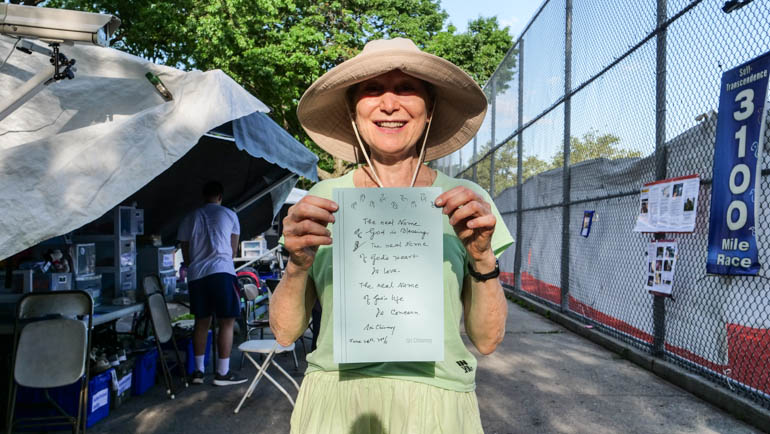 The real Name
of God is Blessing.
The real Name
of God's heart
Is Love.
The real Name
of God's life
Is Concern
Sri Chinmoy
Sri Chinmoy
Self-
Transcendence
3100
Mile
Race